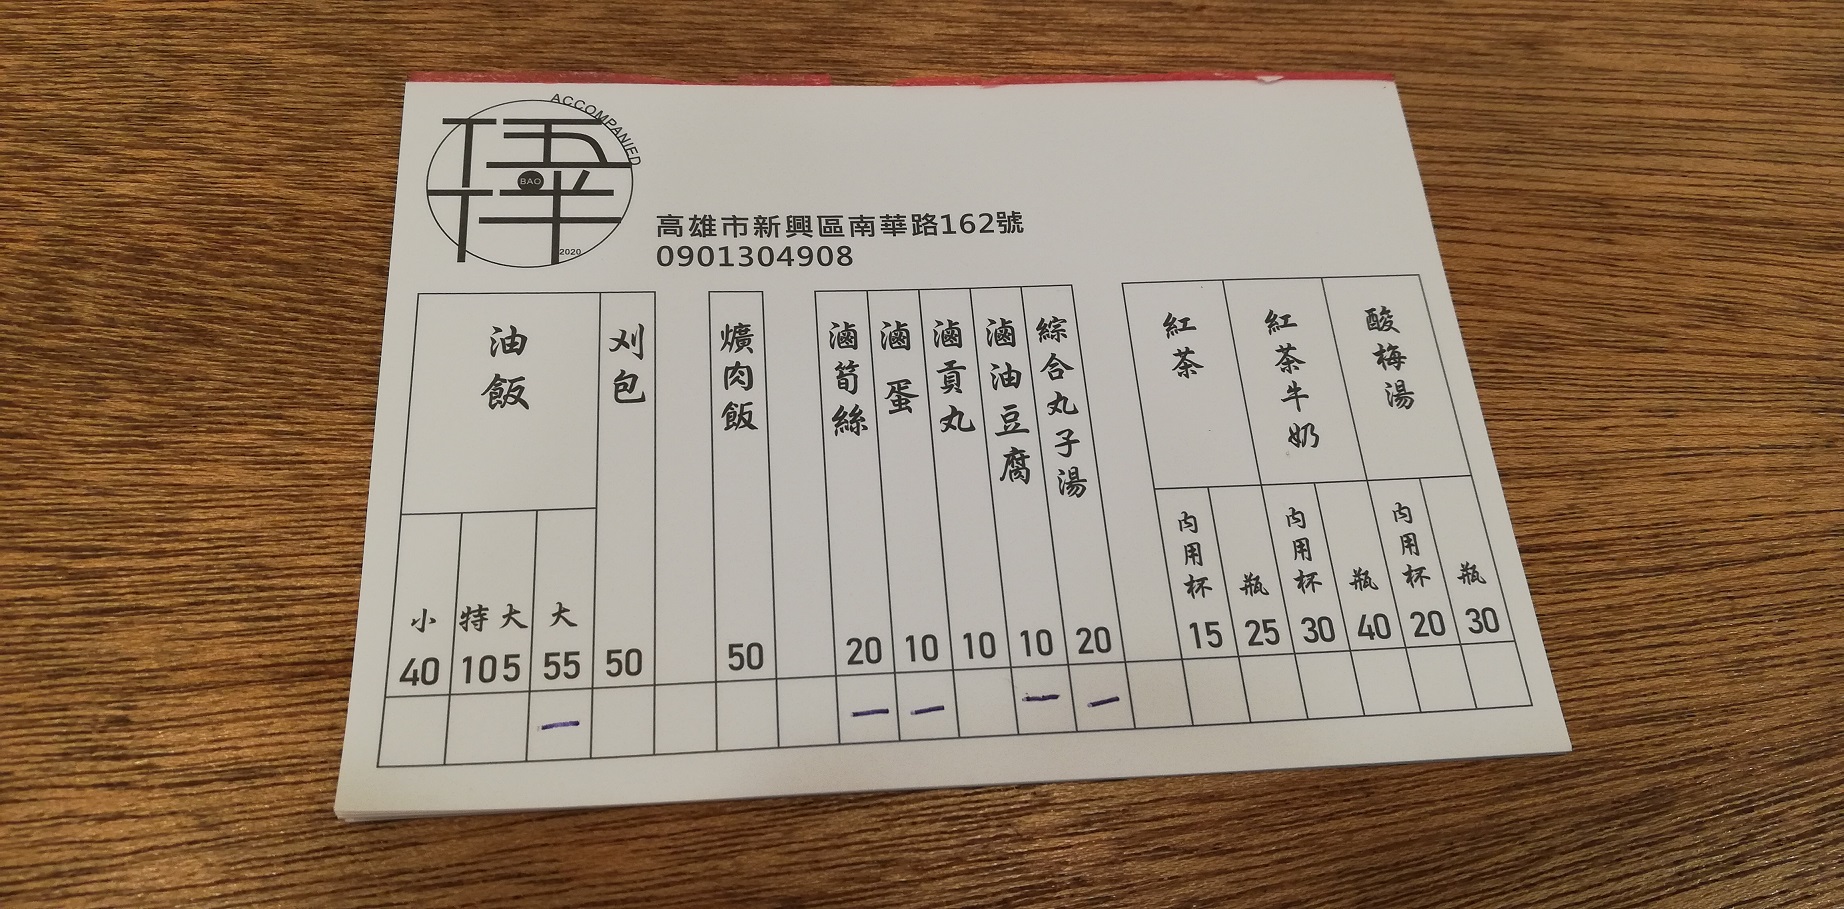 ACCOMPANIED
伍
BAO
伴
2020
高雄市新興區南華路162號
0901304908
油飯
小
40
特大
105
大
55
刈包
50
爌肉飯
50
滷筍絲
20
滷蛋
10
滷貢丸
10
滷油豆腐
10
綜合丸子湯
20
紅茶
內用杯
15
瓶
25
紅茶牛奶
內用杯
30
瓶
40
酸梅湯
內用杯
20
瓶
30